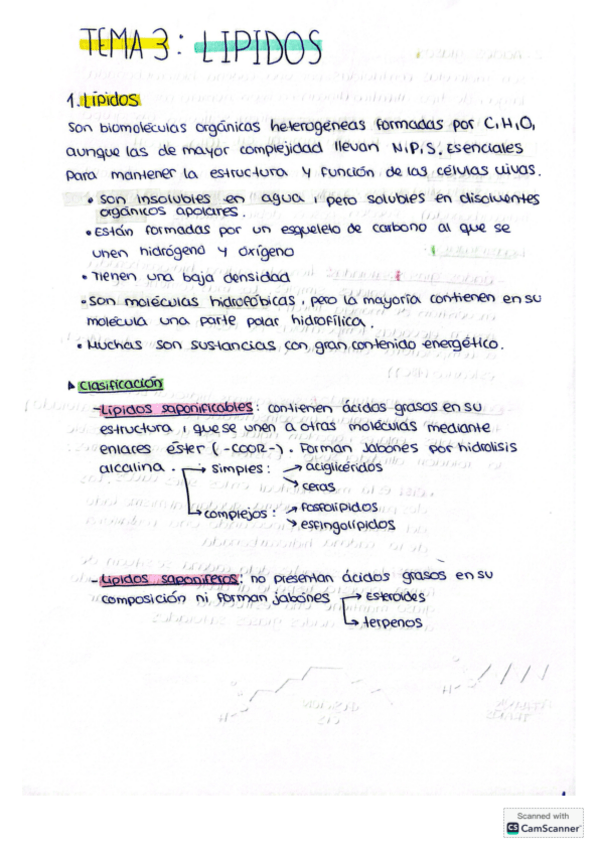 TEMA 3: LIPIDOS
1. Lípidos
Son biomoléculas orgánicas heterogéneas formadas por C,H,O,
aunque las de mayor complejidad llevan N,P,S. Esenciales
para mantener la estructura y función de las células vivas.
• Son insolubles en agua, pero solubles en disolventes
orgánicos apolares.
• Están formadas por un esqueleto de carbono al que se
unen hidrógeno y oxígeno
• Tienen una baja densidad
• Son moléculas hidrofóbicas, pero la mayoría contienen en su
molécula una parte polar hidrofílica.
• Muchas son sustancias con gran contenido energético.
▲ Clasificación
- Lípidos saponificables: contienen ácidos grasos en su
estructura, que se unen a otras moléculas mediante
enlaces éster (-COOR-). Forman jabones por hidrolisis
alcalina. → simples: → aciglicéridos
→ ceras
→ complejos: → fosfolípidos
→ esfingolípidos
- Lípidos saponiferos: no presentan ácidos grasos en su
composición ni forman jabones → Esteroides
→ terpenos
Scanned with
CS CamScanner